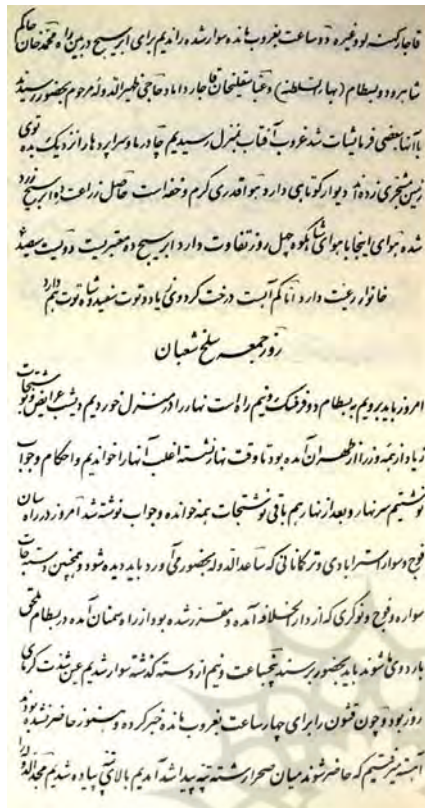 قاجار کشیک‌لو و غیره دو ساعت بغروب مانده سوار شده راندیم برای ابرسیج در بین راه محمد خان حاکم
شاهرود و بسطام (بهاءالسلطنه) و عباسقلیخان قاجار داماد حاجی ظهیرالدوله مرحوم بحضور رسیدند
با آنها بعضی فرمایشات شد غروب آفتاب بمنزل رسیدیم چادرها و سراپرده ها را نزدیک بده توی
زمین شجری زده‌اند دیوار کوتاهی دارد هوا قدری گرم و خفه است حاصل زراعت ده ابرسیج زرد
شده هوای اینجا با هوای شاهکوه چهل روز تفاوت دارد ابرسیج ده معتبریست دویست سیصد
خانوار رعیت دارد اما کم آبست درخت گردوی زیاد و توت سفید و شاه توت هم دارد
روز جمعه سلخ شعبان
امروز باید برویم به بسطام دو فرسنگ و نیم راه است نهار را در منزل خوردیم دیشب عرایض و نوشتجات
زیاد از همه وزرا از طهران آمده بود تا وقت نهار نشسته اغلب آنها را خواندیم و احکام و جواب
نوشتیم سر نهار و بعد از نهار هم باقی نوشتجات همه خوانده و جواب نوشته شد امروز در راه سان
فوج و سوار استرابادی و ترکمانانی که ساعدالدوله بحضور می‌آورد باید دیده شود و همچنین دستجات
سواره و فوج و نوکری که از دارالخلافه آمده و مقرر شده بود از راه سمنان آمده در بسطام ملحق
باردوی شوند باید بحضور برسند پنجساعت و نیم از دسته گذشته سوار شدیم عین شدت گرمای
روز بود و چون قشون را برای چهار ساعت بغروب مانده خبر کرده و هنوز حاضر نشده بودند
آهسته میرفتیم که حاضر شوند میان صحرا رشته تپه پیدا شد آمدیم بالای تپه پیاده شدیم مجدالدوله را